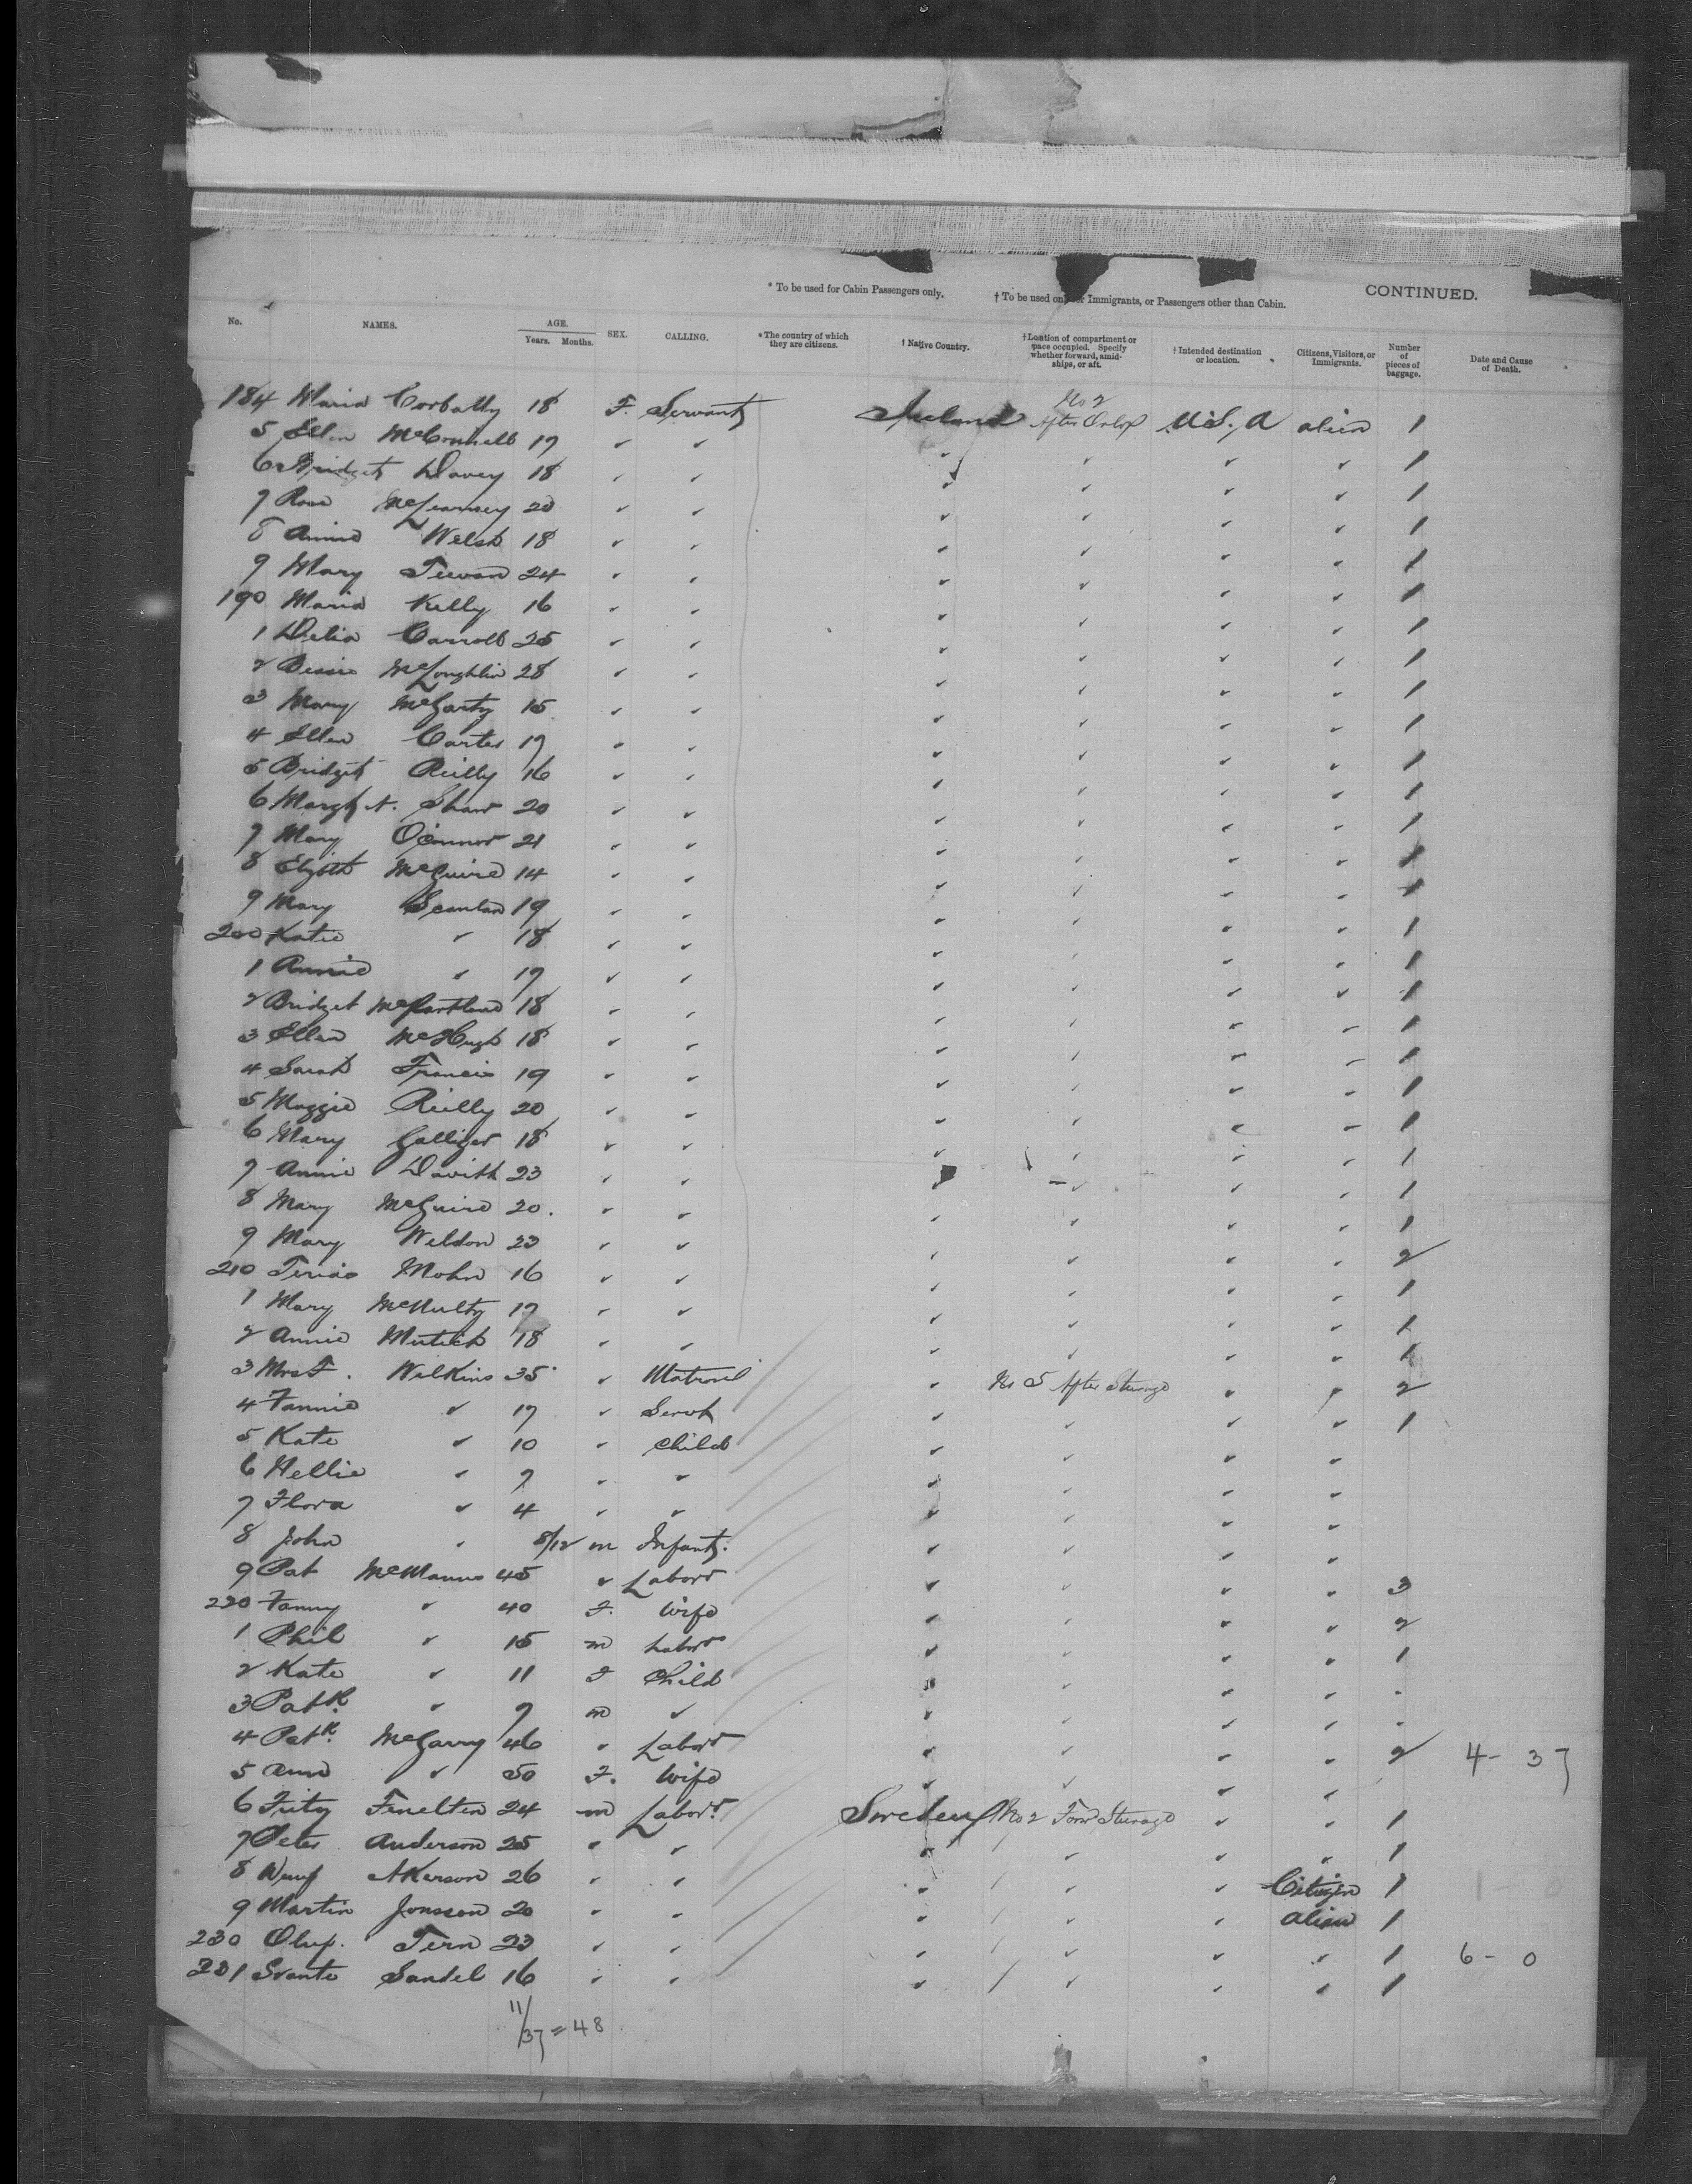 * To be used for Cabin Passengers only. † To be used on er Immigrants, or Passengers other than Cabin. CONTINUED.
No. NAMES. AGE. Years. Months. SEX. CALLING. * The country of which they are citizens. † Native Country. † Location of compartment or space occupied. Specify whether forward, amidships, or aft. † Intended destination or location. Citizens, Visitors, or Immigrants. Number of pieces of baggage. Date and Cause of Death.
184 Maria Corbally 18 F. Servant Ireland No 2 After Orlop U.S.A alien 1
5 Ellen McConnell 17 ✓ ✓ ✓ ✓ ✓ ✓ 1
6 Bridget Davey 18 ✓ ✓ ✓ ✓ ✓ ✓ 1
7 Rose McKearney 20 ✓ ✓ ✓ ✓ ✓ ✓ 1
8 Annie Welsh 18 ✓ ✓ ✓ ✓ ✓ ✓ 1
9 Mary 24 ✓ ✓ ✓ ✓ ✓ ✓ 1
190 Maria Kelly 16 ✓ ✓ ✓ ✓ ✓ ✓ 1
1 Delia Carroll 25 ✓ ✓ ✓ ✓ ✓ ✓ 1
2 Bessie McLoughlin 28 ✓ ✓ ✓ ✓ ✓ ✓ 1
3 Mary McGarty 15 ✓ ✓ ✓ ✓ ✓ ✓ 1
4 Ellen Carter 17 ✓ ✓ ✓ ✓ ✓ ✓ 1
5 Bridget Reilly 16 ✓ ✓ ✓ ✓ ✓ ✓ 1
6 Marght. Shaw 20 ✓ ✓ ✓ ✓ ✓ ✓ 1
7 Mary O'Connor 21 ✓ ✓ ✓ ✓ ✓ ✓ 1
8 Elizbth McGuire 14 ✓ ✓ ✓ ✓ ✓ ✓ 1
9 Mary Scanlan 19 ✓ ✓ ✓ ✓ ✓ ✓ 1
200 Katie ✓ 18 ✓ ✓ ✓ ✓ ✓ ✓ 1
1 Annie ✓ 17 ✓ ✓ ✓ ✓ ✓ ✓ 1
2 Bridget McPartland 18 ✓ ✓ ✓ ✓ ✓ ✓ 1
3 Ellen McHugh 18 ✓ ✓ ✓ ✓ ✓ ✓ 1
4 Sarah Francis 19 ✓ ✓ ✓ ✓ ✓ ✓ 1
5 Maggie Reilly 20 ✓ ✓ ✓ ✓ ✓ ✓ 1
6 Mary Galliger 18 ✓ ✓ ✓ ✓ ✓ ✓ 1
7 Annie Davitt 23 ✓ ✓ ✓ ✓ ✓ ✓ 1
8 Mary McGuire 20. ✓ ✓ ✓ ✓ ✓ ✓ 1
9 Mary Weldon 23 ✓ ✓ ✓ ✓ ✓ ✓ 2
210 Mohn 16 ✓ ✓ ✓ ✓ ✓ ✓ 1
1 Mary McNulty 17 ✓ ✓ ✓ ✓ ✓ ✓ 1
2 Annie 18 ✓ ✓ ✓ ✓ ✓ ✓ 1
3 Mrs F. Wilkins 35 ✓ Matron ✓ No 5 After Sterage ✓ ✓ 2
4 Fannie ✓ 17 ✓ Servt ✓ ✓ ✓ ✓ 1
5 Kate ✓ 10 ✓ child ✓ ✓ ✓ ✓
6 Nellie ✓ 7 ✓ ✓ ✓ ✓ ✓ ✓
7 Flora ✓ 4 ✓ ✓ ✓ ✓ ✓ ✓
8 John ✓ 8/12 m Infant. ✓ ✓ ✓ ✓
9 Pat McManus 45 ✓ Laborr ✓ ✓ ✓ ✓ 3
220 Fanny ✓ 40 F. Wife ✓ ✓ ✓ ✓ 2
1 Phil ✓ 15 m Laborr ✓ ✓ ✓ ✓ 1
2 Kate ✓ 11 F Child " ✓ ✓ ✓ -
3 Patk. ✓ 9 m ✓ ✓ ✓ ✓ ✓ -
4 Patk. McGarry 46 ✓ Laborr ✓ ✓ ✓ ✓ 2 4- 37
5 Ann ✓ 50 F. Wife ✓ ✓ ✓ ✓
6 Fritz 24 m Laborr Sweden No 2 Forw Sterage ✓ ✓ 1
7 Peter Anderson 25 ✓ ✓ ✓ ✓ ✓ ✓ 1
8 Akerson 26 ✓ ✓ ✓ ✓ ✓ Citizen 1 1- 0
9 Martin Jonsson 20 ✓ ✓ ✓ ✓ ✓ alien 1
230 Oluf. Tern 23 ✓ ✓ ✓ ✓ ✓ ✓ 1 6- 0
231 Svante Sandel 16 ✓ ✓ ✓ ✓ ✓ ✓ 1
11/37 = 48